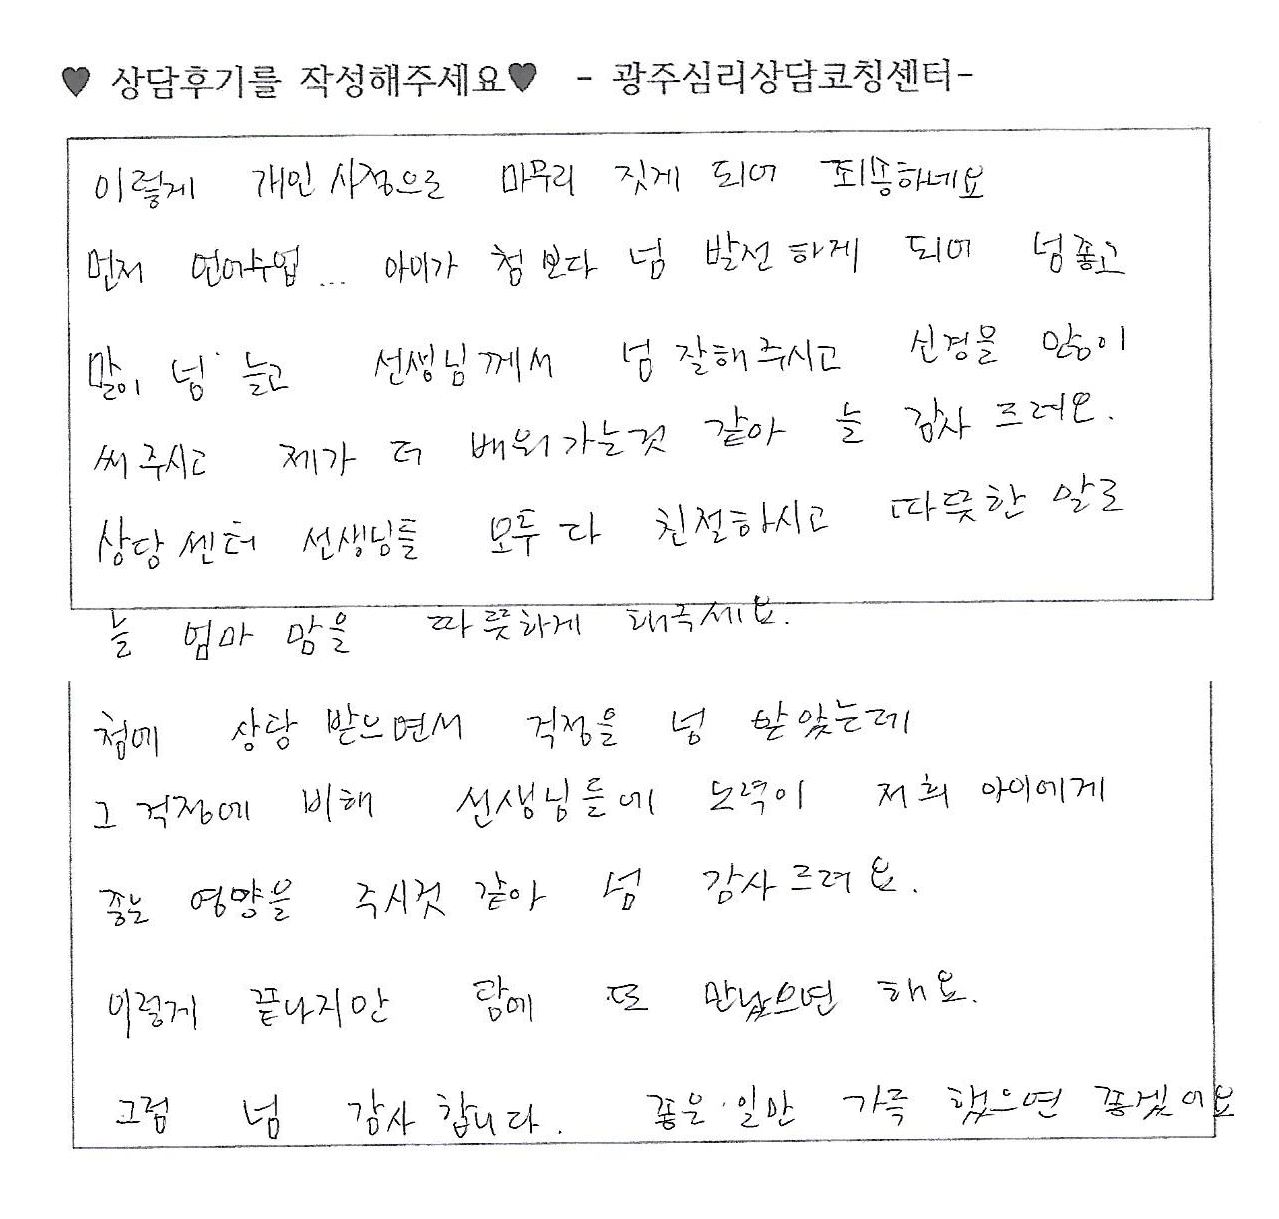 ♥ 상담후기를 작성해주세요♥ - 광주심리상담코칭센터-
이렇게 개인 사정으로 마무리 짓게 되어 죄송하네요
먼저 언어수업... 아이가 첨 보다 넘 발전 하게 되어 넘좋고
말이 넘 늘고 선생님께서 넘 잘해주시고 신경을 많이
써주시고 제가 더 배워가는것 같아 늘 감사 드려요.
상당센터 선생님들 모두 다 친절하시고 따뜻한 말로
늘 엄마 맘을 따뜻하게 해주세요.
첨에 상당 받으면서 걱정을 넘 많았는데
그 걱정에 비해 선생님들에 노력이 저희 아이에게
좋은 영양을 주시것 같아 넘 감사드려요.
이렇게 끝나지만 담에 또 만났으면 해요.
그럼 넘 감사합니다. 좋은 일만 가득 했으면 좋겠어요